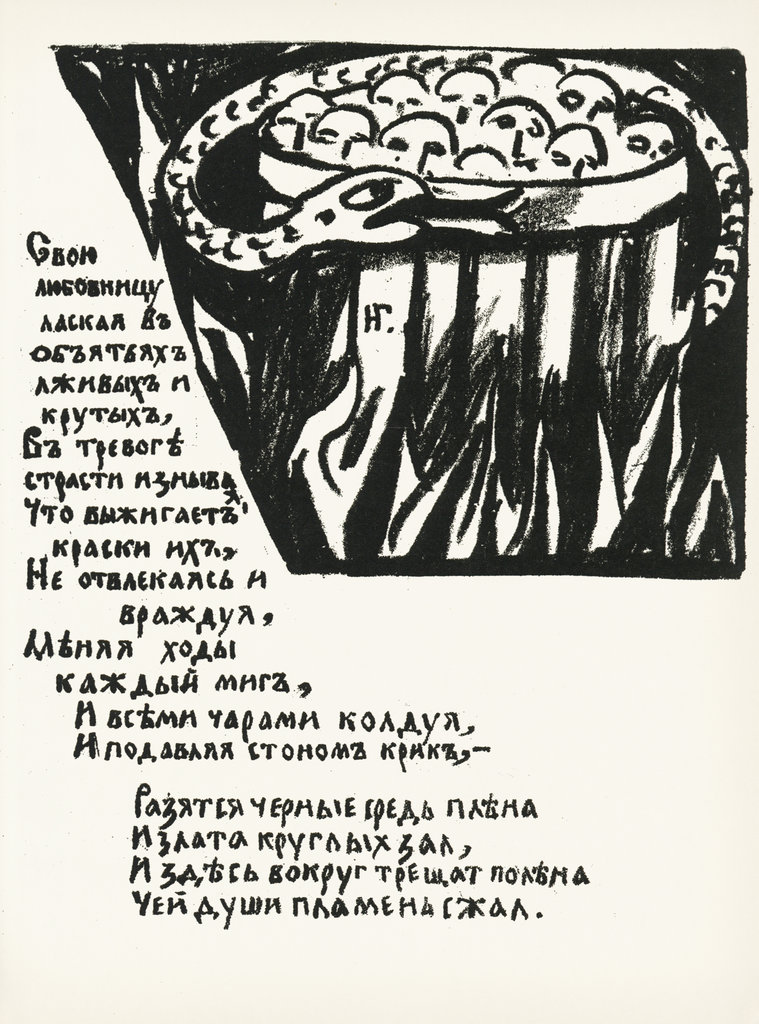 НГ.
Свою
любовницу
лаская въ
объятьяхъ
лживыхъ и
крутыхъ,
Въ тревогѣ
страсти изнывая
Что выжигаетъ
краски ихъ,
Не отвлекаясь и
враждуя,
Мѣняя ходы
каждый мигъ,
И всѣми чарами колдуя,
И подавляя стономъ крикъ,—
Разятся черные средь плѣна
И злата круглых зал,
И здѣсь вокруг трещат полѣна
Чей души пламень сжал.